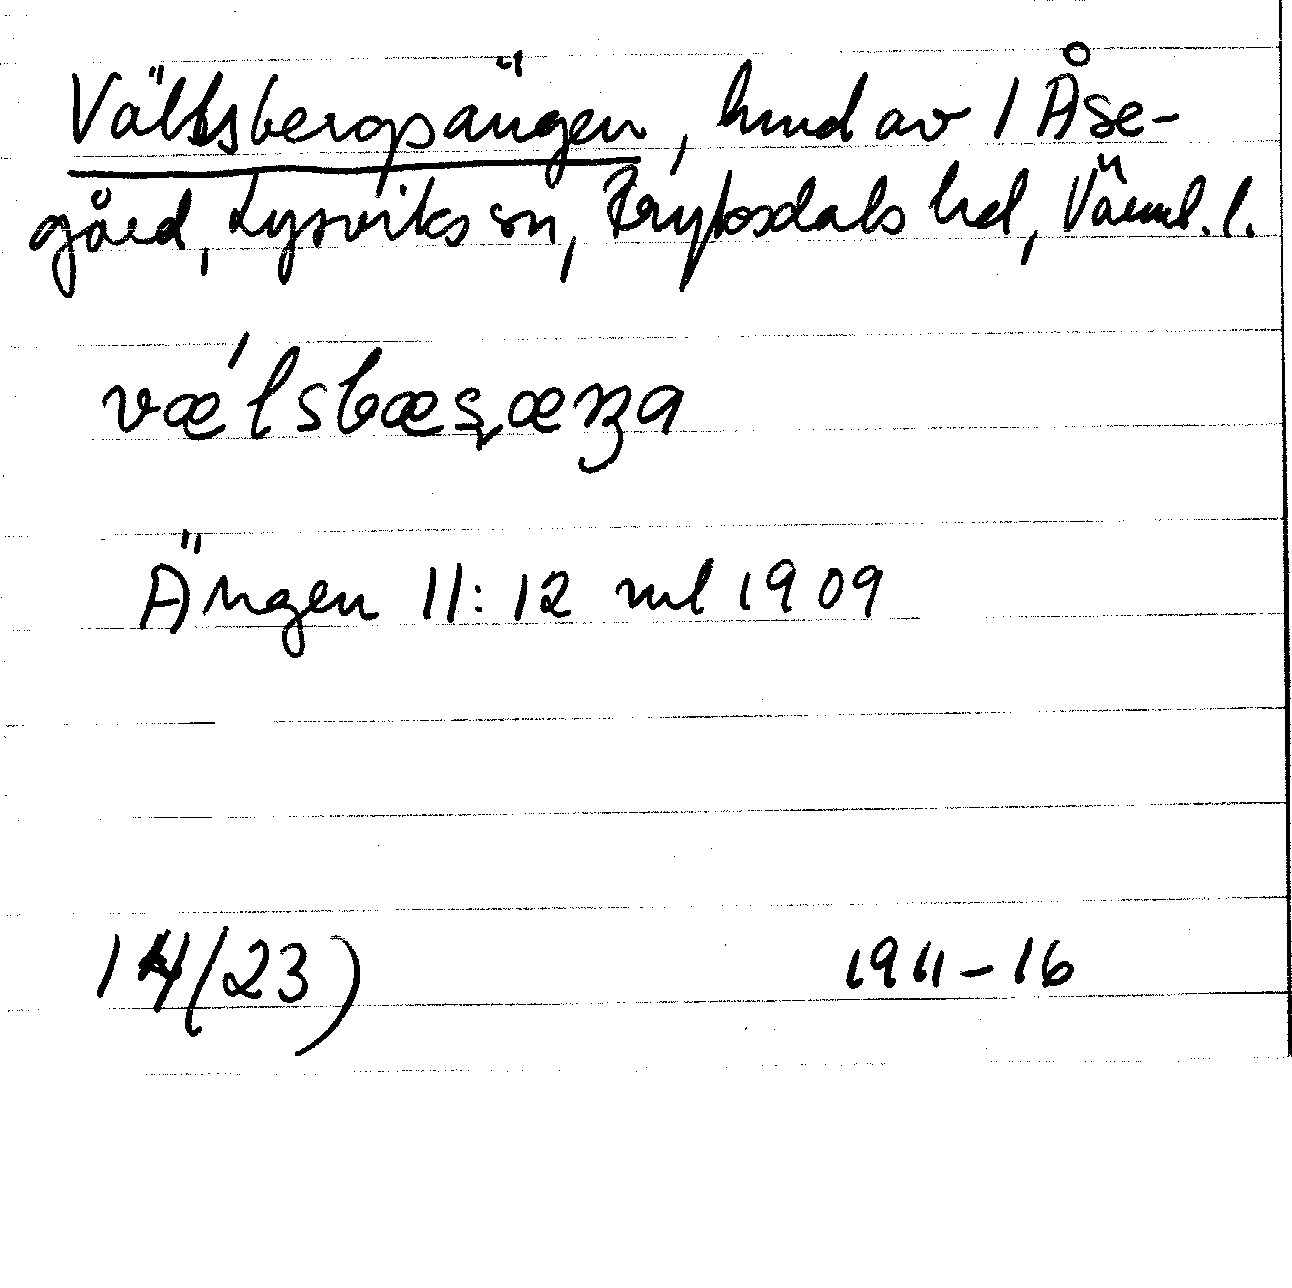 Vältsbergsängen, hmd av 1 Åse-
gård, Lysviks sn, Fryksdals hd, Värml. l.
væ´lsbæşæŋa
Ängen 11:12 enl 1909
14(23) 1911-16